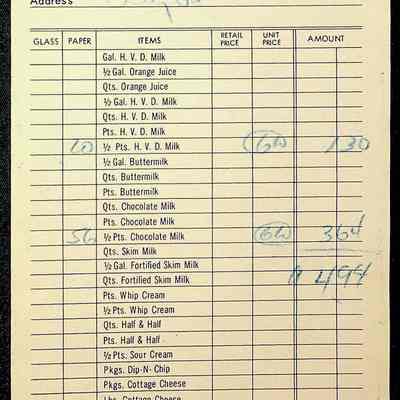 Address
GLASS PAPER ITEMS RETAIL PRICE UNIT PRICE AMOUNT
Gal. H. V. D. Milk
½ Gal. Orange Juice
Qts. Orange Juice
½ Gal. H. V. D. Milk
Qts. H. V. D. Milk
Pts. H. V. D. Milk
20 ½ Pts. H. V. D. Milk 6½ 130
½ Gal. Buttermilk
Qts. Buttermilk
Pts. Buttermilk
Qts. Chocolate Milk
Pts. Chocolate Milk
56 ½ Pts. Chocolate Milk 6½ 364
Qts. Skim Milk
½ Gal. Fortified Skim Milk 494
Qts. Fortified Skim Milk
Pts. Whip Cream
½ Pts. Whip Cream
Qts. Half & Half
Pts. Half & Half
½ Pts. Sour Cream
Pkgs. Dip-N- Chip
Pkgs. Cottage Cheese
Lbs. Cottage Cheese